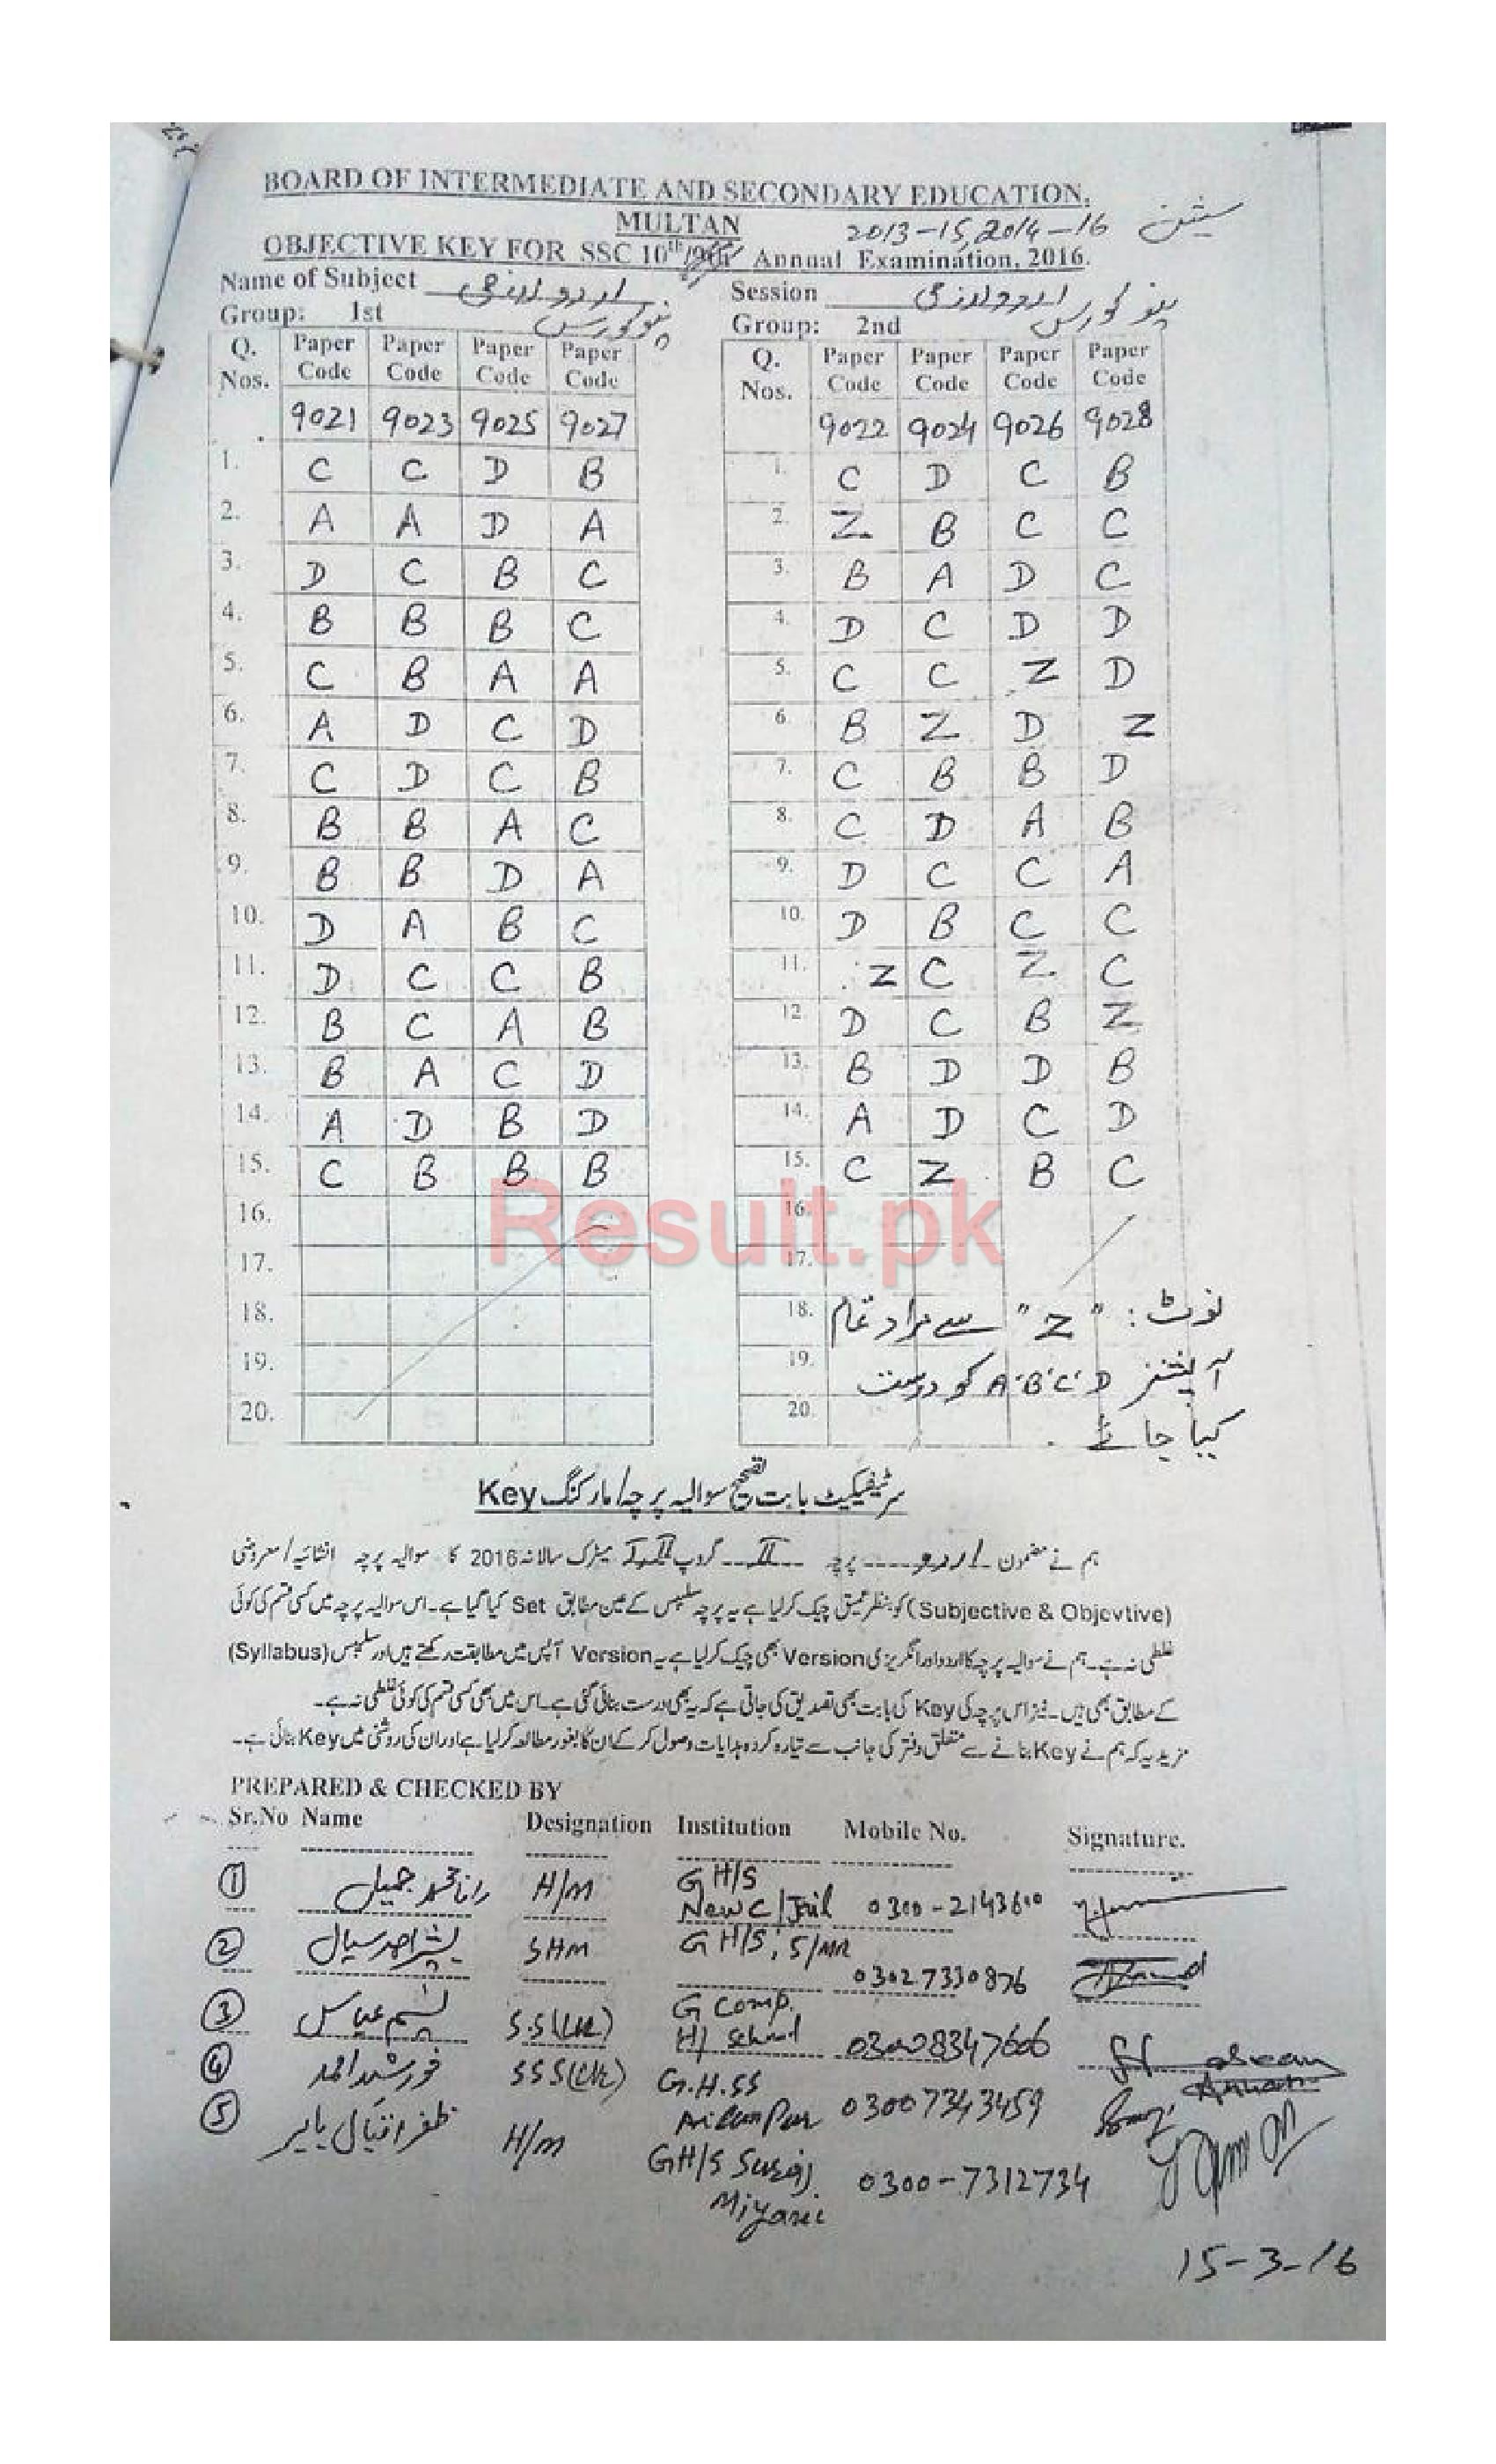 BOARD OF INTERMEDIATE AND SECONDARY EDUCATION,
MULTAN
سیشن 2013-15, 2014-16
OBJECTIVE KEY FOR SSC 10th/9th Annual Examination, 2016.
Name of Subject اردو لازمی Session اردو لازمی
نیو کورس نیو کورس
Group: 1st Group: 2nd
Q. Nos. Paper Code Paper Code Paper Code Paper Code Q. Nos. Paper Code Paper Code Paper Code Paper Code
9021 9023 9025 9027 9022 9024 9026 9028
1. C C D B 1. C D C B
2. A A D A 2. Z B C C
3. D C B C 3. B A D C
4. B B B C 4. D C D D
5. C B A A 5. C C Z D
6. A D C D 6 B Z D Z
7. C D C B 7. C B B D
8. B B A C 8. C D A B
9. B B D A 9. D C C A
10. D A B C 10. D B C C
11. D C C B 11. Z C Z C
12. B C A B 12 D C B Z
13. B A C D 13. B D D B
14. A D B D 14. A D C D
15. C B B B 15. C Z B C
Result.pk
16. 16.
17. 17.
18. 18. نوٹ: "Z" سے مراد تمام
19. 19. آپشنز A'B'C'D کو درست
20. 20. کیا جائے
سرٹیفکیٹ بابت تصحیح سوالیہ پرچہ/مارکنگ Key
ہم نے مضمون اردو پرچہ II گروپ میٹرک سالانہ 2016 کا سوالیہ پرچہ انشائیہ/معروضی
(Subjective & Objevtive) کو بنظر عمیق چیک کرلیا ہے یہ پرچہ سلیبس کے عین مطابق Set کیا گیا ہے۔ اس سوالیہ پرچہ میں کسی قسم کی کوئی
غلطی نہ ہے۔ ہم نے سوالیہ پرچہ کا اردو اور انگریزی Version بھی چیک کرلیا ہے یہ Version آپس میں مطابقت رکھتے ہیں اور سلیبس (Syllabus)
کے مطابق بھی ہیں۔ نیز اس پرچہ کی Key کی بابت بھی تصدیق کی جاتی ہے کہ یہ بھی درست بنائی گئی ہے۔ اس میں بھی کسی قسم کی کوئی غلطی نہ ہے۔
مزید یہ کہ ہم نے Key بنانے سے متعلق دفتر کی جانب سے تیار کردہ ہدایات وصول کر کے ان کا بغور مطالعہ کرلیا ہے اور ان کی روشنی میں Key بنائی ہے۔
PREPARED & CHECKED BY
Sr.No Name Designation Institution Mobile No. Signature.
1 رانا محمد جمیل H/M GH/S
New C/Jail 0300-2143600
2 بشیر احمد سیال SHM GH/S, S/MR
03027330876
3 عباس S.S G Comp.
H/ School 03008347606
4 خورشید احمد SSS G.H.SS
03007343459
5 ظفر اقبال H/M GH/S Suraj
Miyani 0300-7312734
15-3-16